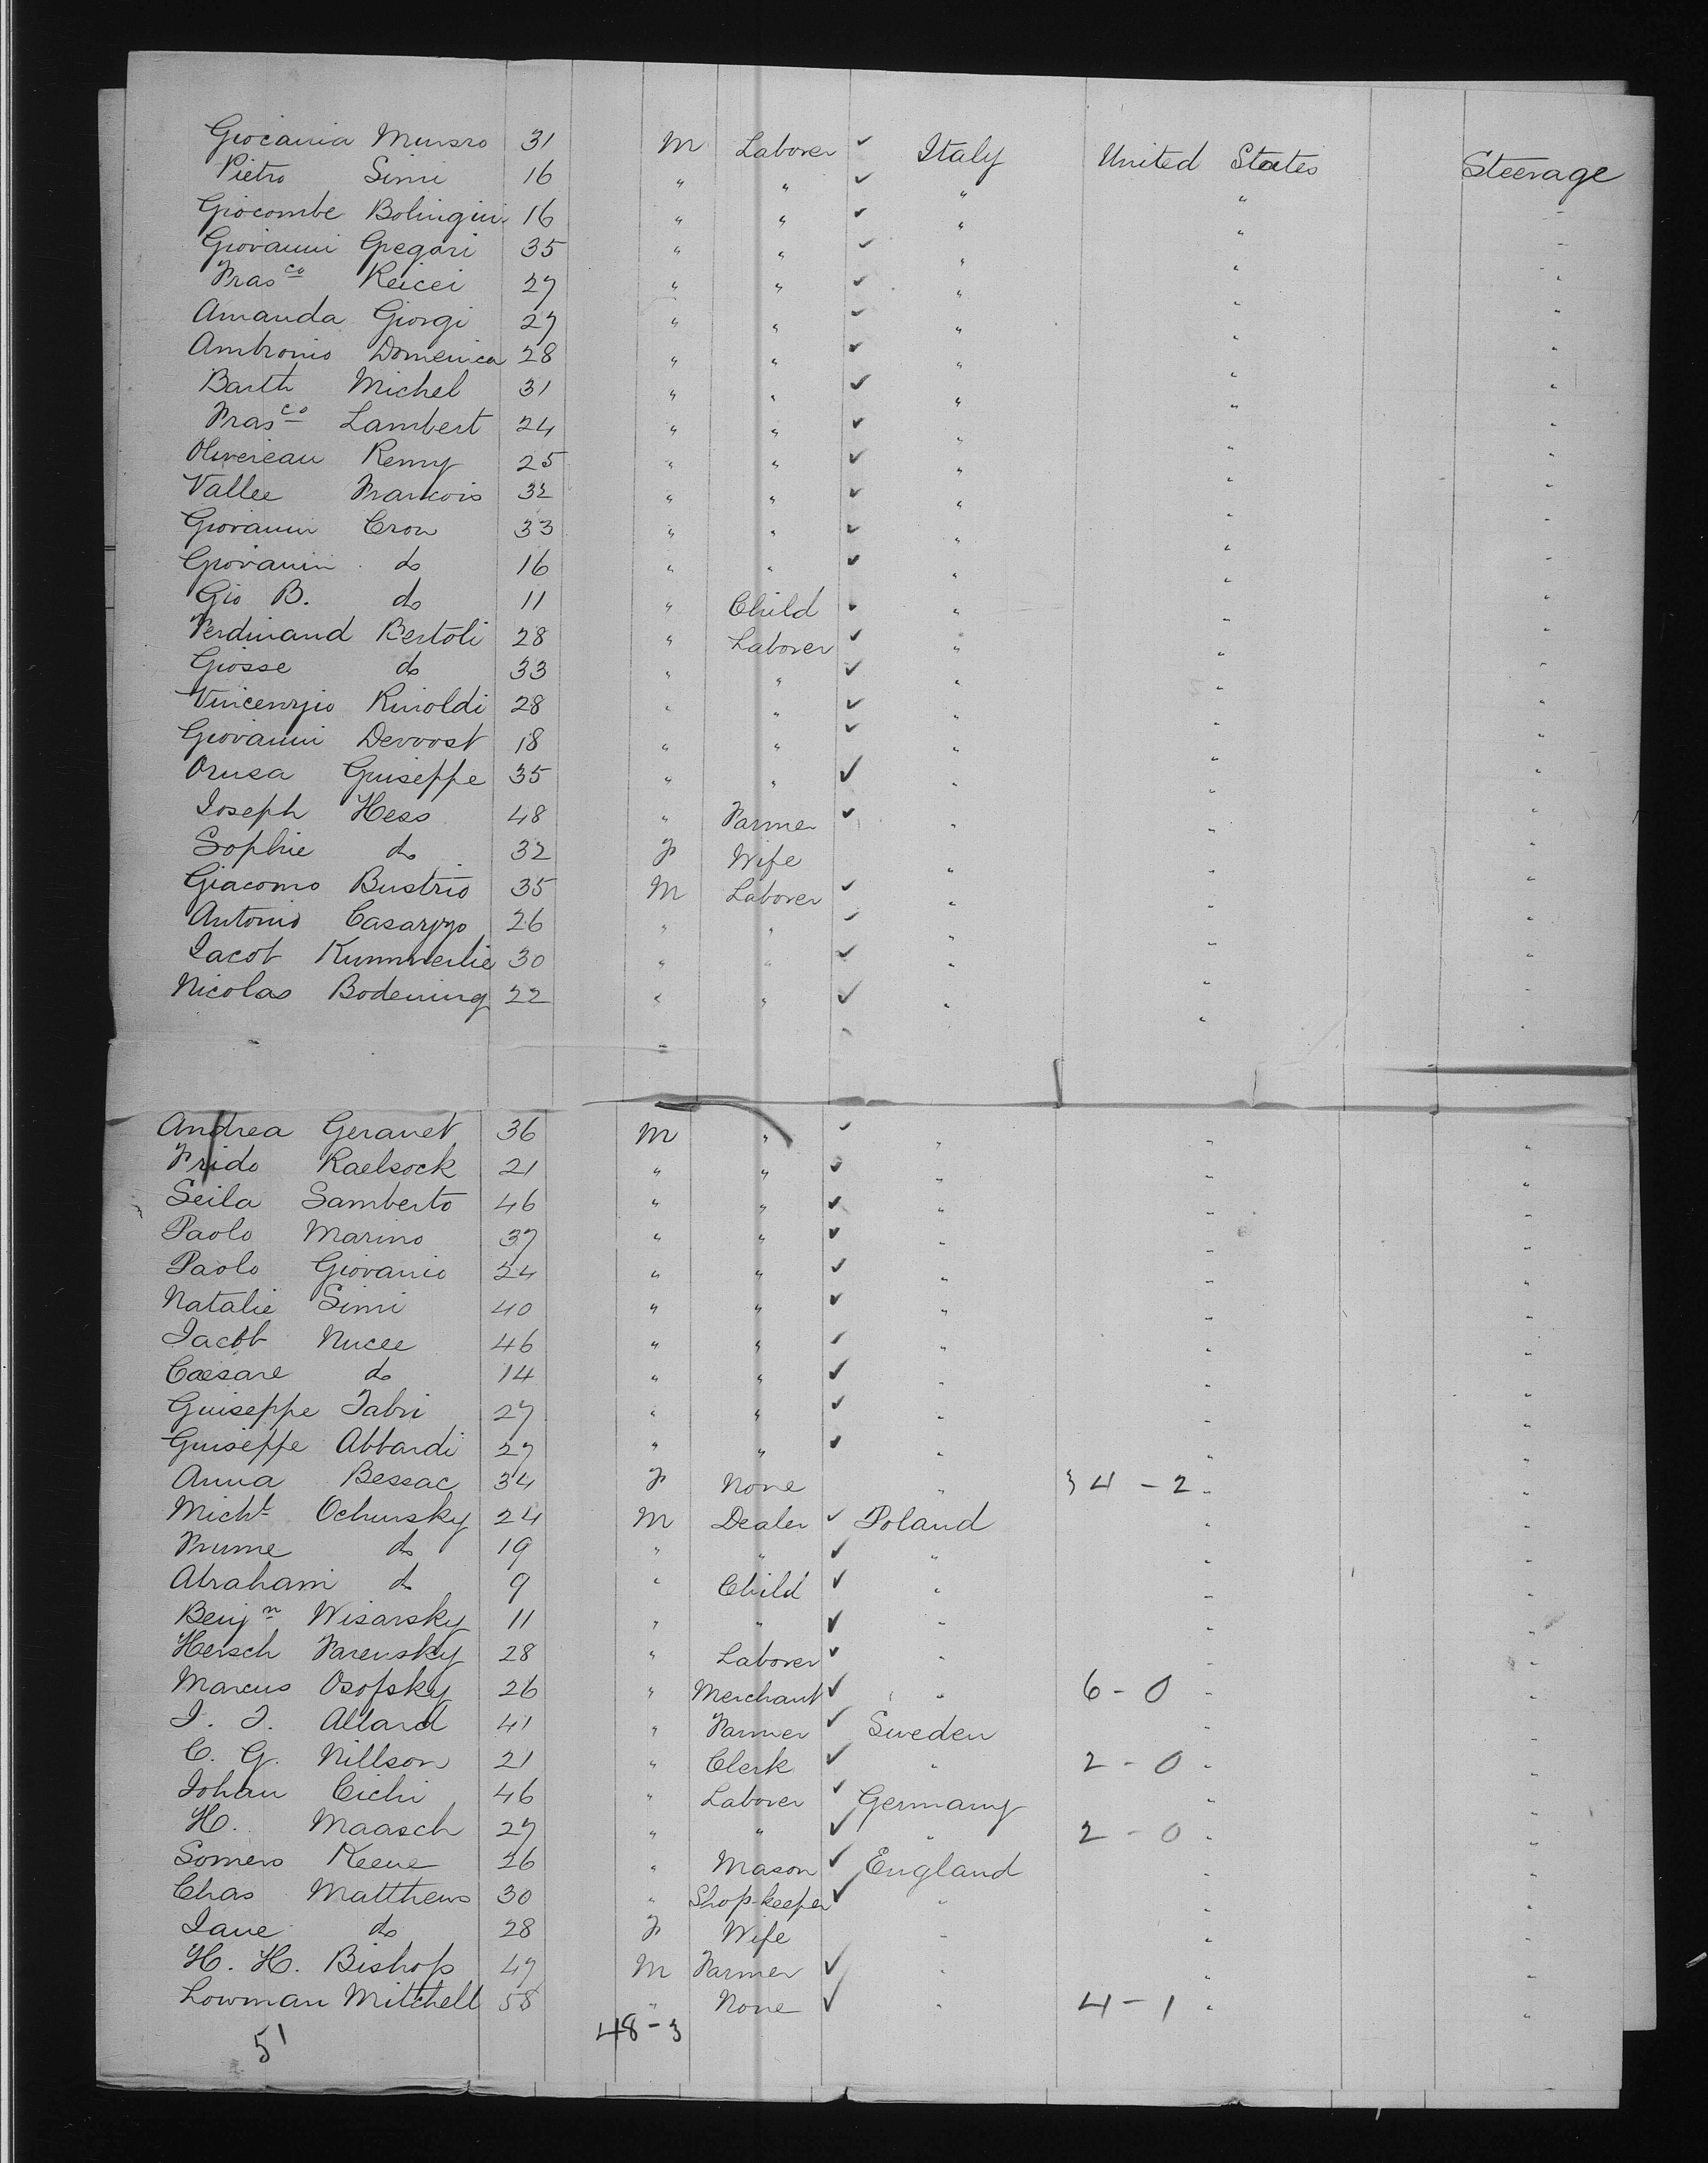 Giocania Munsro 31 M Laborer ✓ Italy United States Steerage
Pietro Simi 16 " " ✓ " " "
Giocombe Bolingini 16 " " ✓ " " "
Giovanni Gregari 35 " " ✓ " " "
Frasco Reicei 27 " " ✓ " " "
Amanda Giorgi 27 " " ✓ " " "
Ambronio Domenica 28 " " ✓ " " "
Barth Michel 31 " " ✓ " " "
Frasco Lambert 24 " " ✓ " " "
Olivereau Remy 25 " " ✓ " " "
Vallee Francois 32 " " ✓ " " "
Giovanni Cron 33 " " ✓ " " "
Giovanni do 16 " " ✓ " " "
Gio B. do 11 " Child ✓ " " "
Ferdinand Bertoli 28 " Laborer ✓ " " "
Giosse do 33 " " ✓ " " "
Vincenzio Rinoldi 28 " " ✓ " " "
Giovanni Devvost 18 " " ✓ " " "
Orusa Guiseppe 35 " " ✓ " " "
Joseph Hess 48 " Farmer ✓ " " "
Sophie do 32 F Wife " " "
Giacomo Bustrio 35 M Laborer ✓ " " "
Antonio Casarzzo 26 " " ✓ " " "
Jacob Kummerlie 30 " " ✓ " " "
Nicolas Bodening 22 " " ✓ " " "
Andrea Geranet 36 M " ✓ " " "
Frido Raelsock 21 " " ✓ " " "
Seila Samberto 46 " " ✓ " " "
Paolo Marino 37 " " ✓ " " "
Paolo Giovanio 24 " " ✓ " " "
Natalie Simi 40 " " ✓ " " "
Jacob Nucee 46 " " ✓ " " "
Caesare do 14 " " ✓ " " "
Guiseppe Tabri 27 " " ✓ " " "
Guiseppe Abbardi 27 " " ✓ " " "
Anna Bessac 34 F None " 34 - 2 " "
Micht Ochunsky 24 M Dealer ✓ Poland " "
Frume do 19 " " ✓ " " "
Abraham do 9 " Child ✓ " " "
Benjn Wisarsky 11 " " ✓ " " "
Hersch Farensky 28 " Laborer ✓ " " "
Marcus Osofsky 26 " Merchant ✓ " 6 - 0 " "
J. J. Allard 41 " Farmer ✓ Sweden " "
C. G. Nillson 21 " Clerk ✓ " 2 - 0 " "
Johan Cichi 46 " Laborer ✓ Germany " "
H. Maasch 27 " " ✓ " 2 - 0 " "
Somers Keene 26 " Mason ✓ England " "
Chas Matthews 30 " Shop-keeper ✓ " " "
Jane do 28 F Wife " " "
H. H. Bishop 47 M Farmer ✓ " " "
Lowman Mitchell 58 " None ✓ " 4 - 1 " "
51 48 - 3